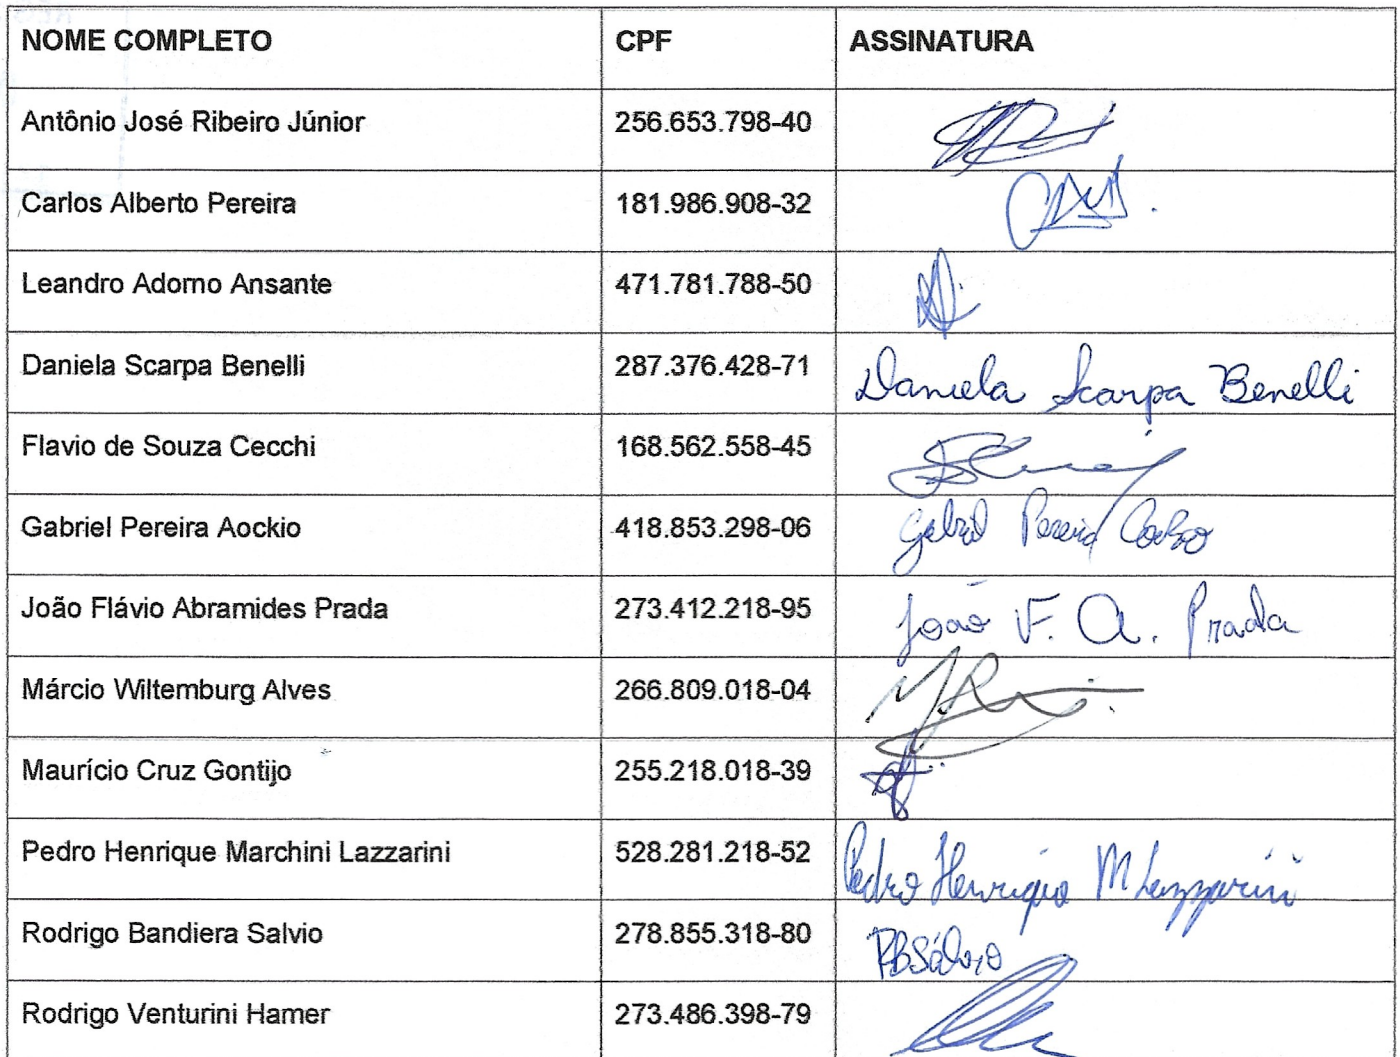 NOME COMPLETO CPF ASSINATURA
Antônio José Ribeiro Júnior 256.653.798-40
Carlos Alberto Pereira 181.986.908-32
Leandro Adorno Ansante 471.781.788-50
Daniela Scarpa Benelli 287.376.428-71 Daniela Scarpa Benelli
Flavio de Souza Cecchi 168.562.558-45
Gabriel Pereira Aockio 418.853.298-06 Gabriel Pereira
João Flávio Abramides Prada 273.412.218-95 João F. A. Prada
Márcio Wiltemburg Alves 266.809.018-04
Maurício Cruz Gontijo 255.218.018-39
Pedro Henrique Marchini Lazzarini 528.281.218-52 Pedro Henrique M Lazzarini
Rodrigo Bandiera Salvio 278.855.318-80 RBSálvio
Rodrigo Venturini Hamer 273.486.398-79